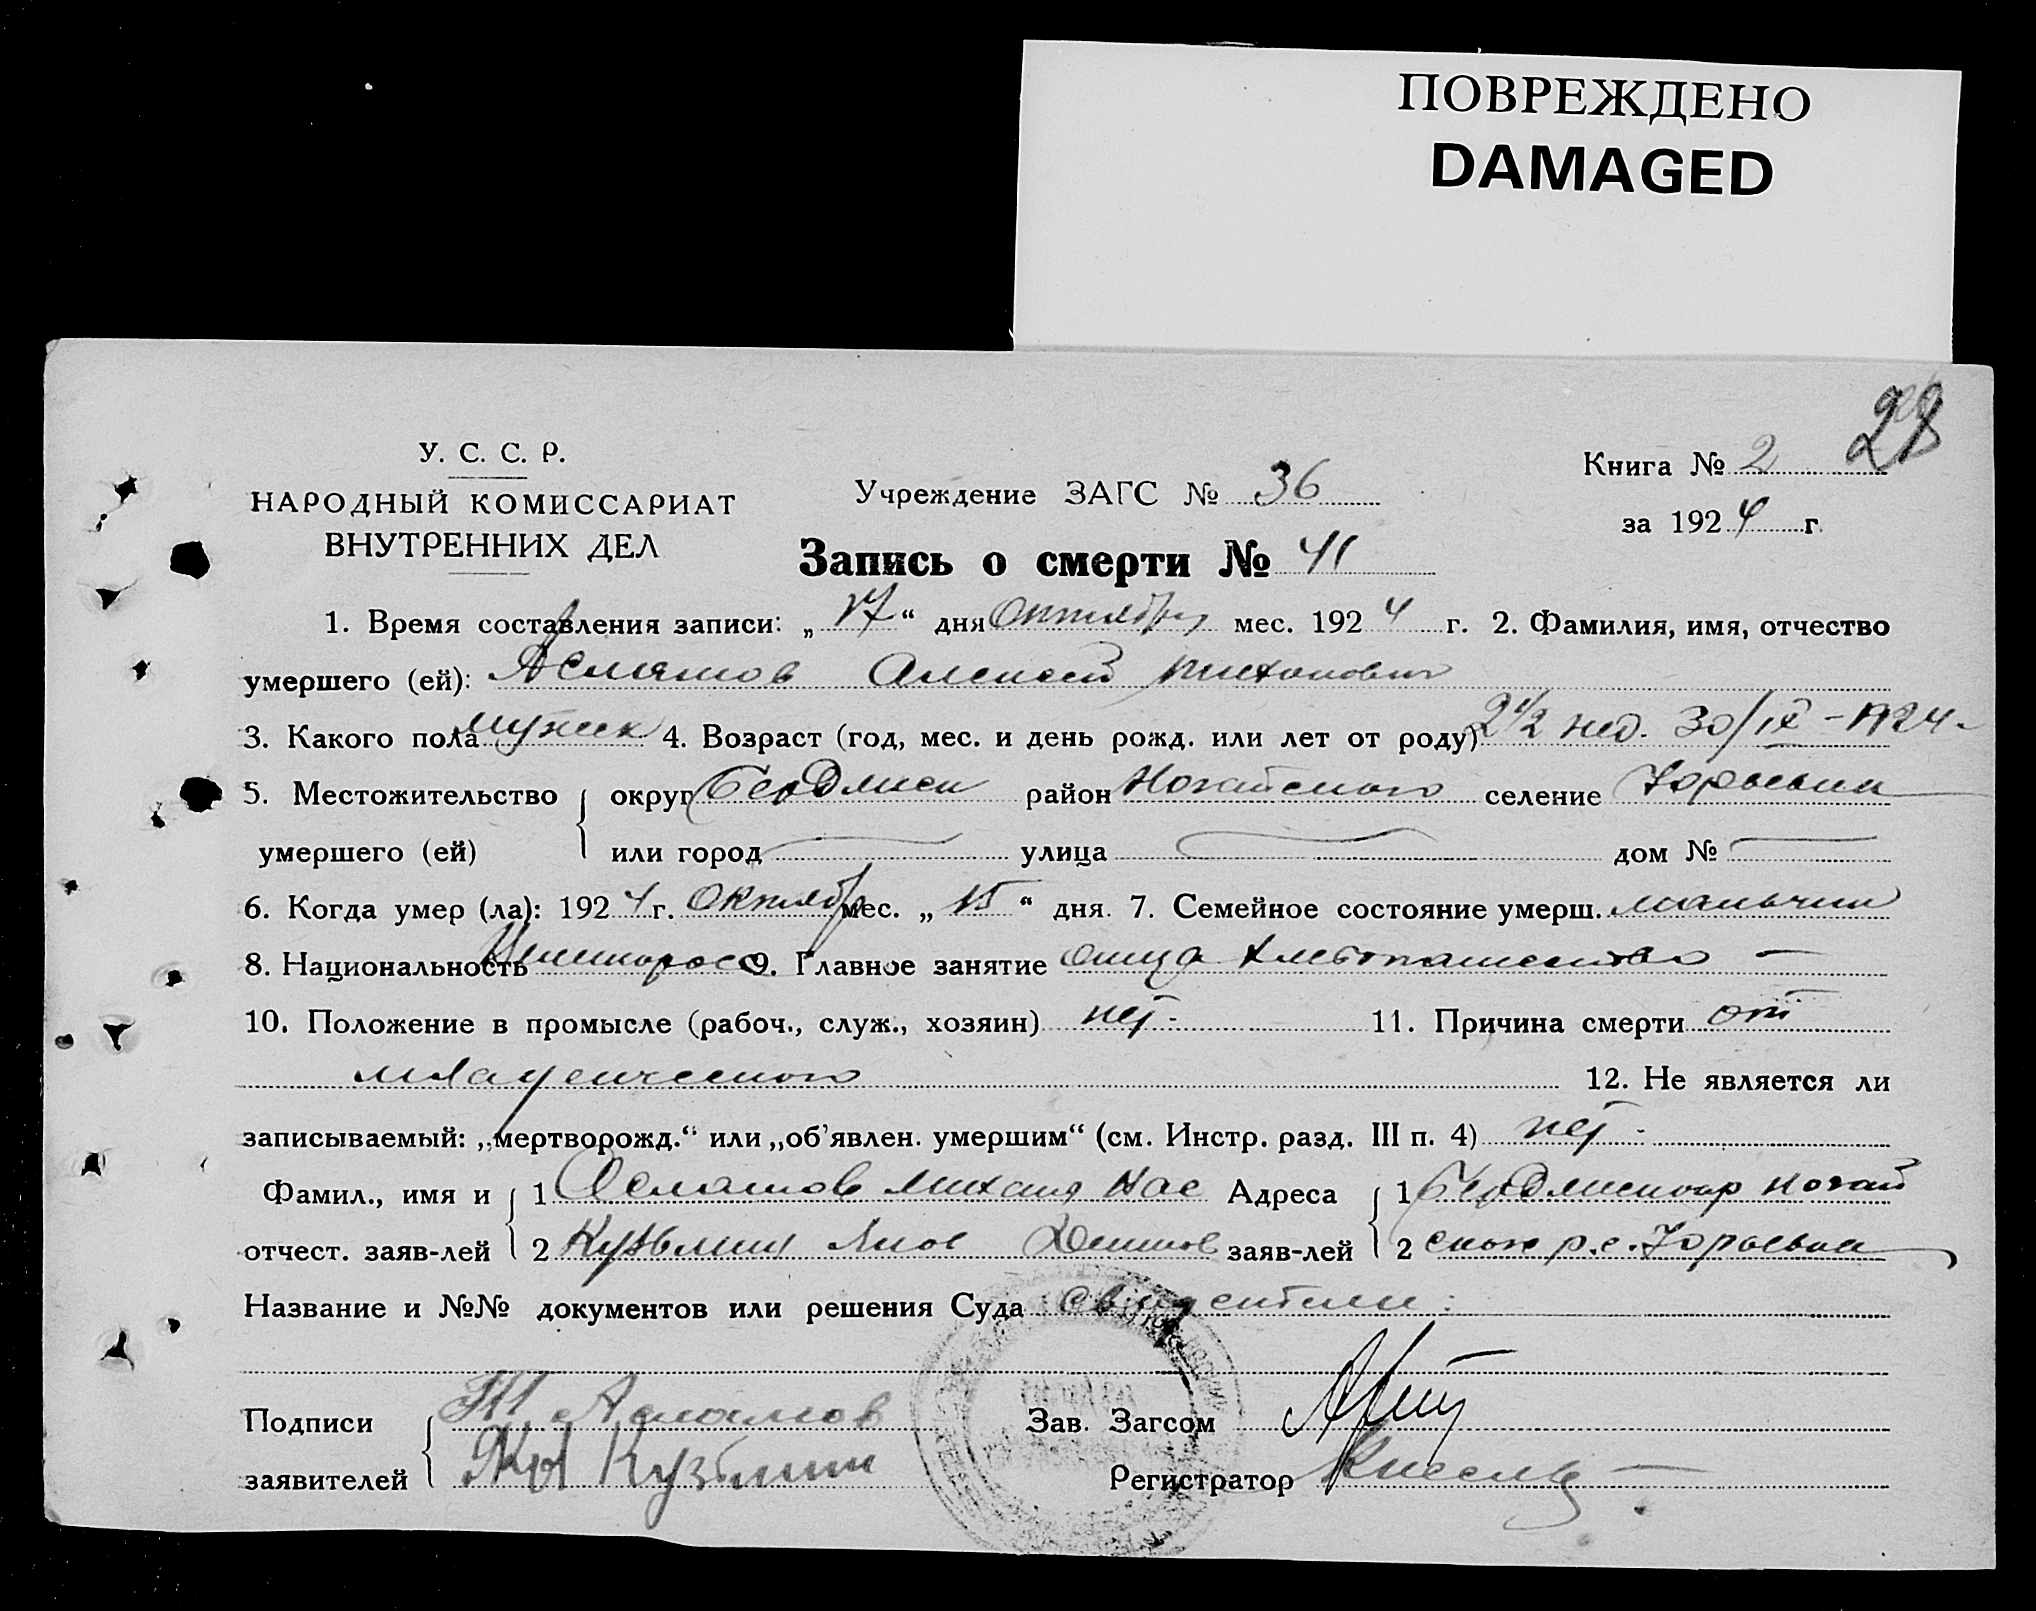 ПОВРЕЖДЕНО
DAMAGED
28
У. С. С. Р.
НАРОДНЫЙ КОМИССАРИАТ
ВНУТРЕННИХ ДЕЛ
Учреждение ЗАГС № 36
Книга № 2
за 1924 г.
Запись о смерти № 41
1. Время составления записи: „17“ дня Октября мес. 1924 г. 2. Фамилия, имя, отчество
умершего (ей): Алексей
3. Какого пола мужск 4. Возраст (год, мес. и день рожд. или лет от роду) 2 1/2 нед. 30/IX – 1924
5. Местожительство округ район Ногайского селение Юрьевки
умершего (ей) или город улица дом №
6. Когда умер (ла): 1924 г. Октябр мес. „15“ дня. 7. Семейное состояние умерш. мальчик
8. Национальность 9. Главное занятие отца хлебопашество —
10. Положение в промысле (рабоч., служ., хозяин) нет - 11. Причина смерти от
младенческого 12. Не является ли
записываемый: „мертворожд.“ или „об'явлен. умершим“ (см. Инстр. разд. III п. 4) нет -
Фамил., имя и 1 Адреса 1
отчест. заяв-лей 2 Кузьмин заяв-лей 2 ского р. с. Юрьевка
Название и №№ документов или решения Суда свидетели:
Подписи Зав. Загсом
заявителей Кузьмин Регистратор